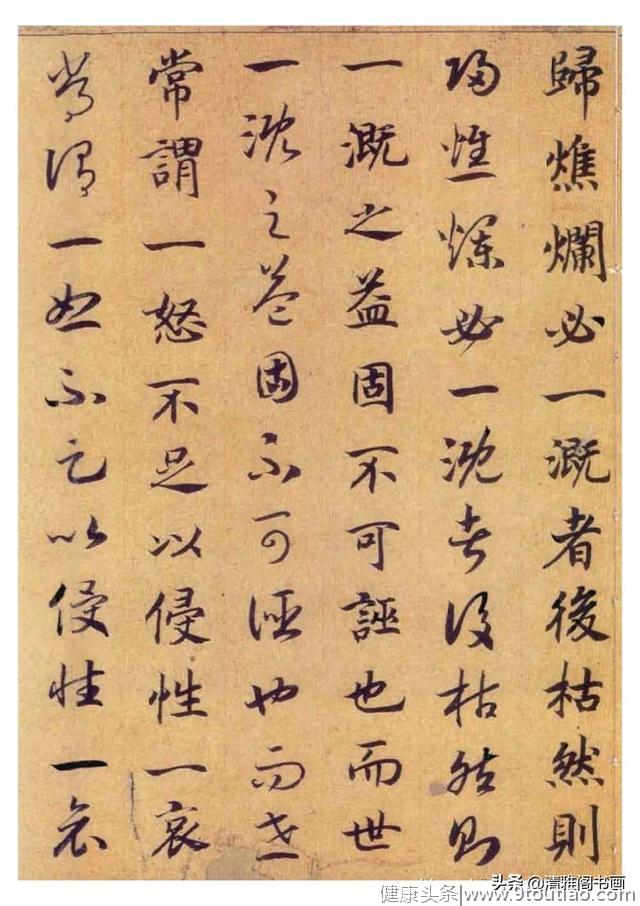 歸燋爛必一溉者後枯然則
歸燋爛必一溉者後枯然則
一溉之益固不可誣也而世
一溉之益固不可誣也而世
常謂一怒不足以侵性一哀
常謂一怒不足以侵性一哀
头条 @清雅阁书画
健康头条 www.9toutiao.com